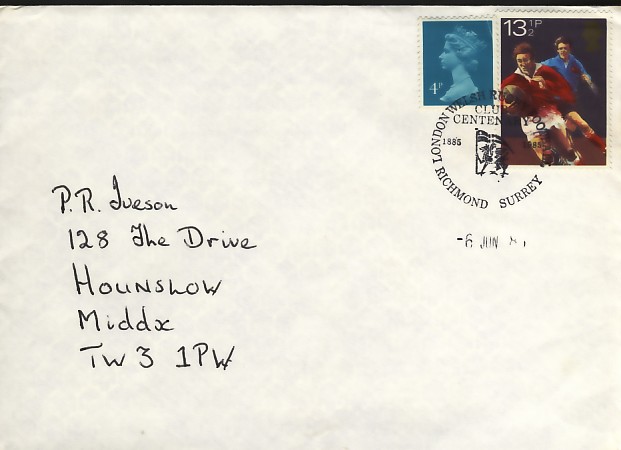 4P
13½P
LONDON WELSH RUGBY FOOTBALL
CLUB
CENTENARY
1885 1985
RICHMOND SURREY
-6 JUN
P.R. Iveson
128 The Drive
Hounslow
Middx
TW3 1PW